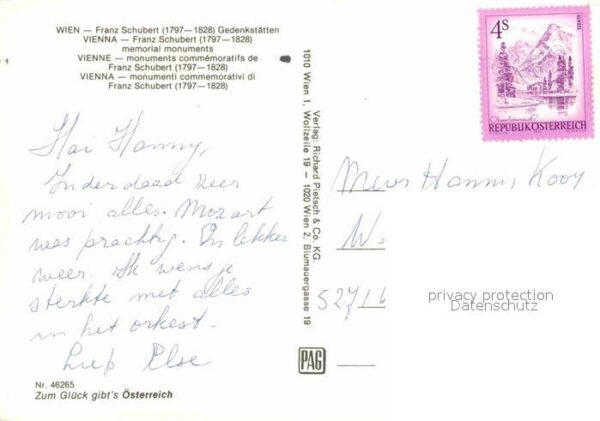 WIEN — Franz Schubert (1797—1828) Gedenkstätten
VIENNA — Franz Schubert (1797—1828)
memorial monuments
VIENNE — monuments commémoratifs de
Franz Schubert (1797—1828)
VIENNA — monumenti commemorativi di
Franz Schubert (1797—1828)
Hai Hanny,
Inderdaad zeer
mooi alles. Mozart
was prachtig. En lekker
weer. Ik wens je
sterkte met alles
in het orkest.
Liefs Else
Nr. 46265
Zum Glück gibt's Österreich
Verlag: Richard Pietsch & Co. KG
1010 Wien 1, Wollzeile 19 — 1020 Wien 2, Blumauergasse 19
PAG
4S
REPUBLIK ÖSTERREICH
Mevr Hanny Kooy
W
5271
privacy protection
Datenschutz